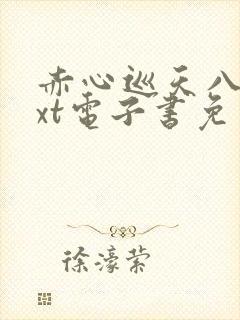 赤心巡天八
xt電子書免
徐濠縈